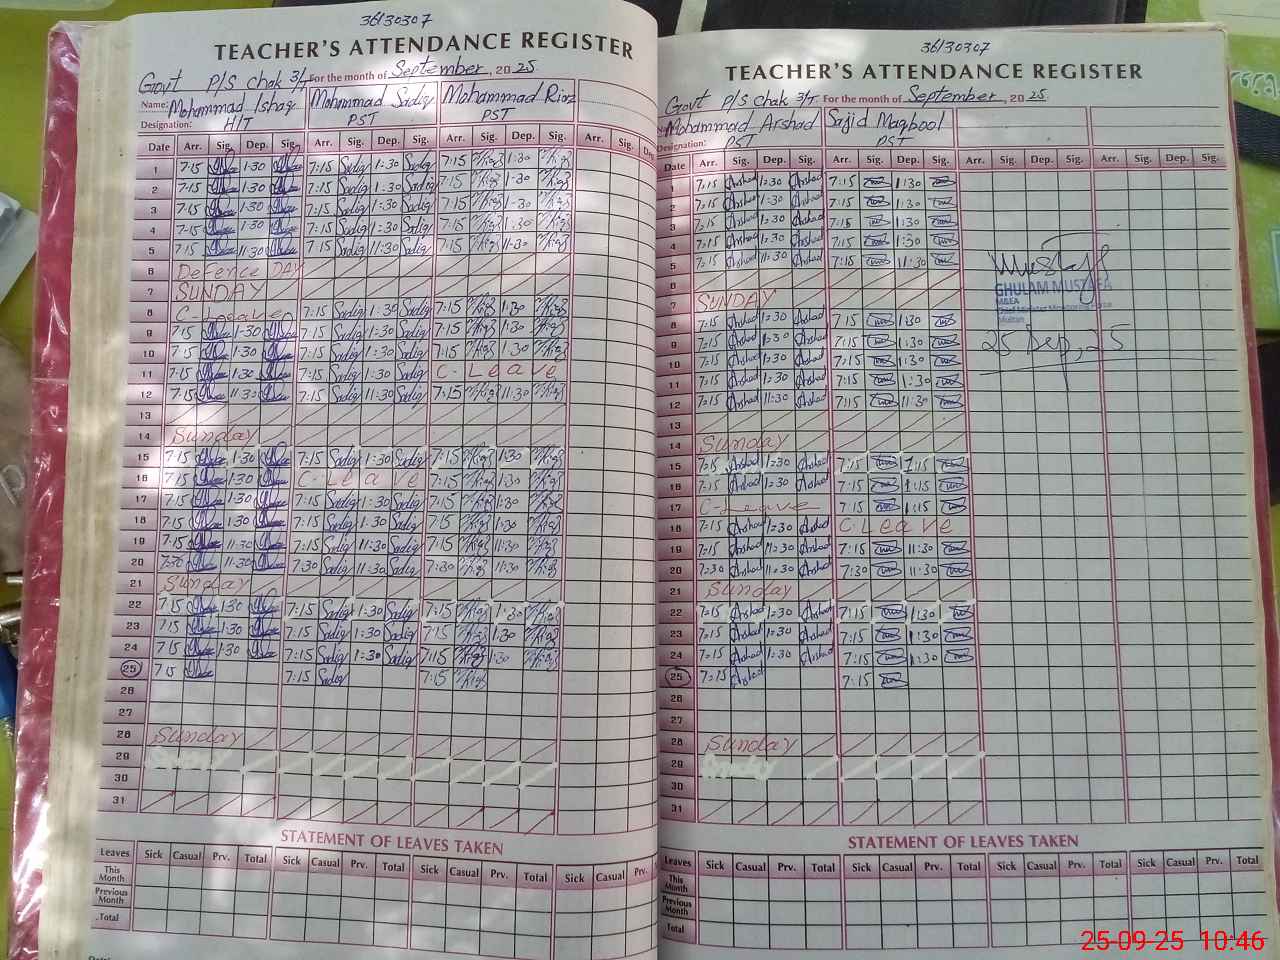 36130307
TEACHER'S ATTENDANCE REGISTER
Govt P/S Chak 3/T For the month of September, 2025
Name: Mohammad Ishaq Mohammad Sadiq Mohammad Riaz
Designation: H/T PST PST
Date Arr. Sig. Dep. Sig. Arr. Sig. Dep. Sig. Arr. Sig. Dep. Sig. Arr. Sig. Dep.
1 7:15 1:30 7:15 Sadiq 1:30 Sadiq 7:15 1:30
2 7:15 1:30 7:15 Sadiq 1:30 Sadiq 7:15 1:30
3 7:15 1:30 7:15 Sadiq 1:30 Sadiq 7:15 1:30
4 7:15 1:30 7:15 Sadiq 1:30 Sadiq 7:15 1:30
5 7:15 11:30 7:15 Sadiq 11:30 Sadiq 7:15 11:30
6 Defence DAY
7 SUNDAY
8 C-Leave 7:15 Sadiq 1:30 Sadiq 7:15 1:30
9 7:15 1:30 7:15 Sadiq 1:30 Sadiq 7:15 1:30
10 7:15 1:30 7:15 Sadiq 1:30 Sadiq 7:15 1:30
11 7:15 1:30 7:15 Sadiq 1:30 Sadiq C-Leave
12 7:15 11:30 7:15 Sadiq 11:30 Sadiq 7:15 11:30
13
14 Sunday
15 7:15 1:30 7:15 Sadiq 1:30 Sadiq 7:15 1:30
16 7:15 1:30 C-Leave 7:15 1:30
17 7:15 1:30 7:15 Sadiq 1:30 Sadiq 7:15 1:30
18 7:15 1:30 7:15 Sadiq 1:30 Sadiq 7:15 1:30
19 7:15 11:30 7:15 Sadiq 11:30 Sadiq 7:15 11:30
20 7:30 11:30 7:30 Sadiq 11:30 Sadiq 7:30 11:30
21 Sunday
22 7:15 1:30 7:15 Sadiq 1:30 Sadiq 7:15 1:30
23 7:15 1:30 7:15 Sadiq 1:30 Sadiq 7:15 1:30
24 7:15 1:30 7:15 Sadiq 1:30 Sadiq 7:15 1:30
25 7:15 7:15 Sadiq 7:15
26
27
28 Sunday
29
30
31
STATEMENT OF LEAVES TAKEN
Leaves Sick Casual Prv. Total Sick Casual Prv. Total Sick Casual Prv. Total Sick Casual Prv.
This Month
Previous Month
Total
36130307
TEACHER'S ATTENDANCE REGISTER
Govt P/S Chak 3/T For the month of September, 2025
Mohammad Arshad Sajid Maqbool
Designation: PST PST
Date Arr. Sig. Dep. Sig. Arr. Sig. Dep. Sig. Arr. Sig. Dep. Sig. Arr. Sig. Dep. Sig.
1 7:15 Arshad 1:30 Arshad 7:15 1:30
2 7:15 Arshad 1:30 Arshad 7:15 1:30
3 7:15 Arshad 1:30 Arshad 7:15 1:30
4 7:15 Arshad 1:30 Arshad 7:15 1:30
5 7:15 Arshad 11:30 Arshad 7:15 11:30
6
7 SUNDAY
8 7:15 Arshad 1:30 Arshad 7:15 1:30
9 7:15 Arshad 1:30 Arshad 7:15 1:30
10 7:15 Arshad 1:30 Arshad 7:15 1:30
11 7:15 Arshad 1:30 Arshad 7:15 1:30
12 7:15 Arshad 11:30 Arshad 7:15 11:30
13
14 Sunday
15 7:15 Arshad 1:30 Arshad 7:15 1:15
16 7:15 Arshad 1:30 Arshad 7:15 1:15
17 C-Leave 7:15 1:15
18 7:15 Arshad 1:30 Arshad C Leave
19 7:15 Arshad 11:30 Arshad 7:15 11:30
20 7:30 Arshad 11:30 Arshad 7:30 11:30
21 Sunday
22 7:15 Arshad 1:30 Arshad 7:15 1:30
23 7:15 Arshad 1:30 Arshad 7:15 1:30
24 7:15 Arshad 1:30 Arshad 7:15 1:30
25 7:15 Arshad 7:15
26
27
28 Sunday
29
30
31
Mustafa
GHULAM MUSTAFA
M&EA
Chief Minister Monitoring Force
Multan
25 Sep, 25
STATEMENT OF LEAVES TAKEN
Leaves Sick Casual Prv. Total Sick Casual Prv. Total Sick Casual Prv. Total Sick Casual Prv. Total
This Month
Previous Month
Total
25-09-25 10:46